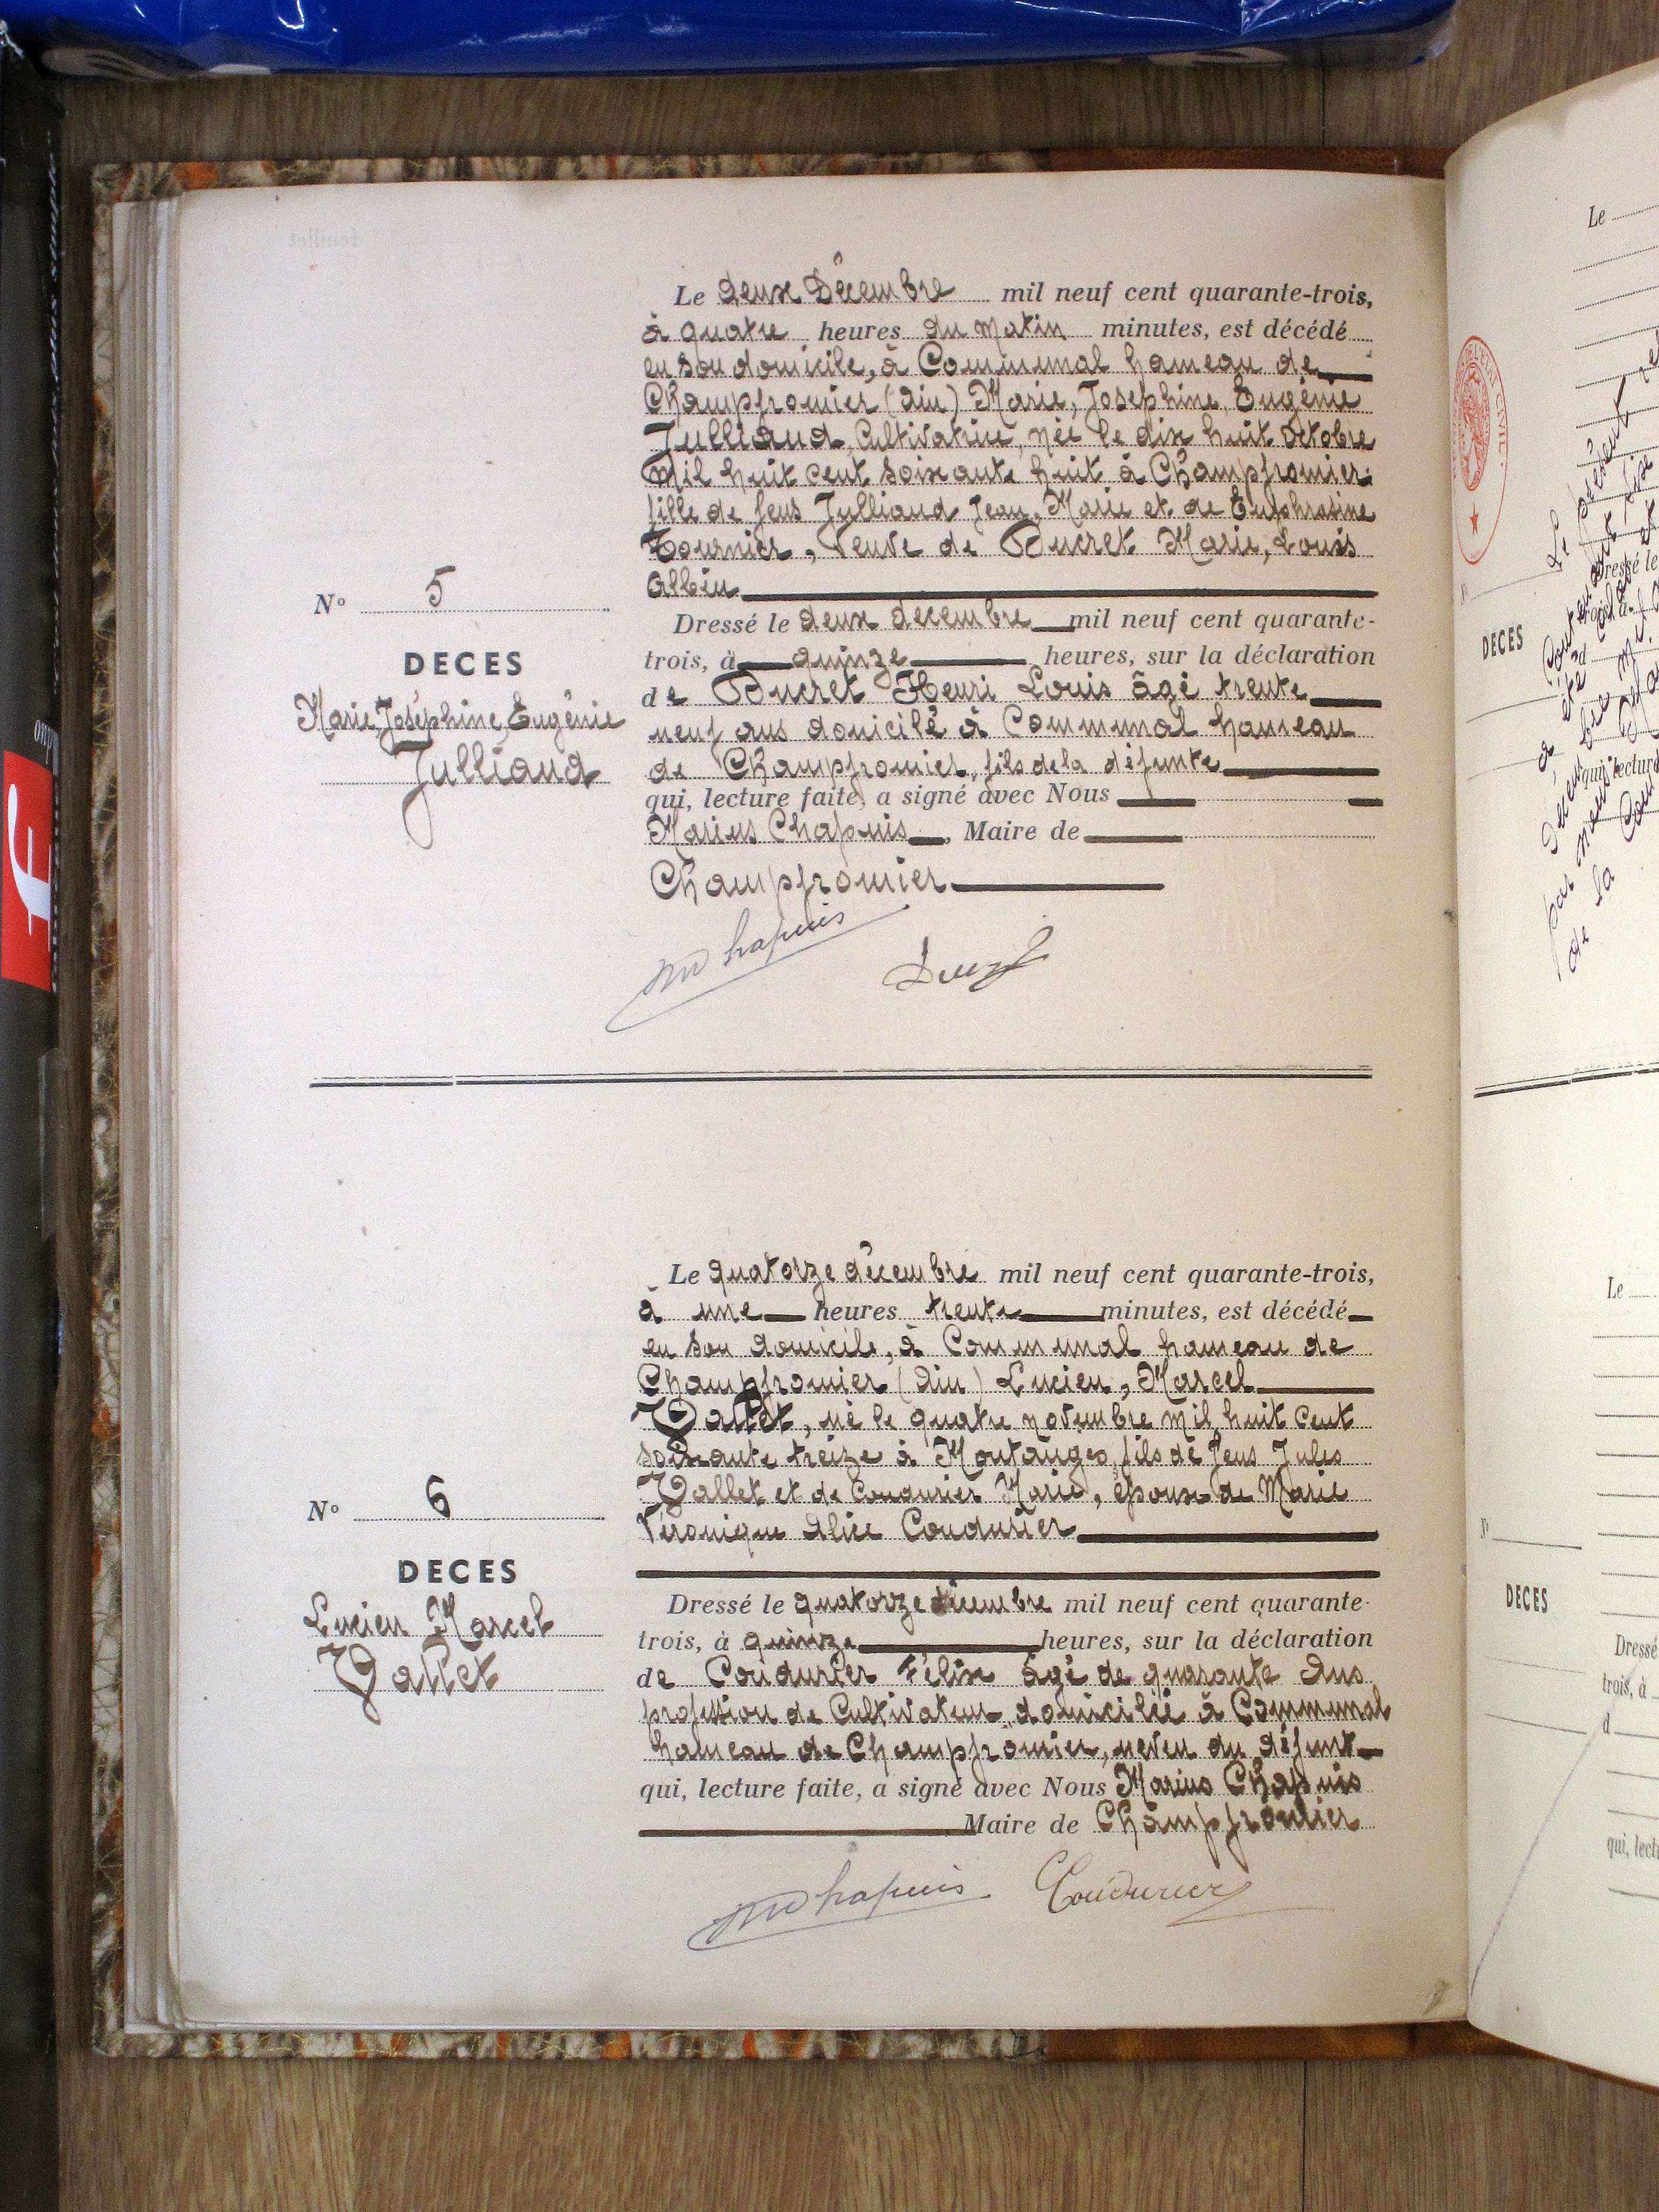 Le deux Décembre mil neuf cent quarante-trois,
à quatre heures du matin minutes, est décédé
en son domicile, à Communal hameau de
Champfromier (Ain) Marie, Joséphine, Eugénie
Julliand, Cultivatrice, née le dix huit octobre
mil huit cent soixante huit à Champfromier.
fille de feus Julliand Jean, Marie et de Euphrasine
Tournier, Veuve de Ducret Marie, Louis
Albin
N° 5
DECES
Marie, Joséphine, Eugénie
Julliand
Dressé le deux décembre mil neuf cent quarante-
trois, à quinze heures, sur la déclaration
de Ducret Henri Louis âgé trente
neuf ans domicilé à Communal hameau
de Champfromier, fils de la défunte
qui, lecture faite, a signé avec Nous
Marius Chapuis, Maire de
Champfromier
M Chapuis
Le quatorze décembre mil neuf cent quarante-trois,
à une heures trente minutes, est décédé
en son domicile, à Communal hameau de
Champfromier (Ain) Lucien, Marcel
Vallet, né le quatre novembre mil huit cent
soixante treize à Montanges, fils de feus Jules
Vallet et de Coudurier Marie, époux de Marie
Véronique Alice Coudurier
N° 6
DECES
Lucien Marcel
Vallet
Dressé le quatorze décembre mil neuf cent quarante-
trois, à quinze heures, sur la déclaration
de Coudurier Félix âgé de quarante Ans
profession de Cultivateur, domicilié à Communal
hameau de Champfromier, neveu du défunt
qui, lecture faite, a signé avec Nous Marius Chapuis
Maire de Champfromier
M Chapuis Coudurier
Le
DECES
Dressé le
qui, lecture
Le
DECES
Dressé
trois, à
d
qui, lect